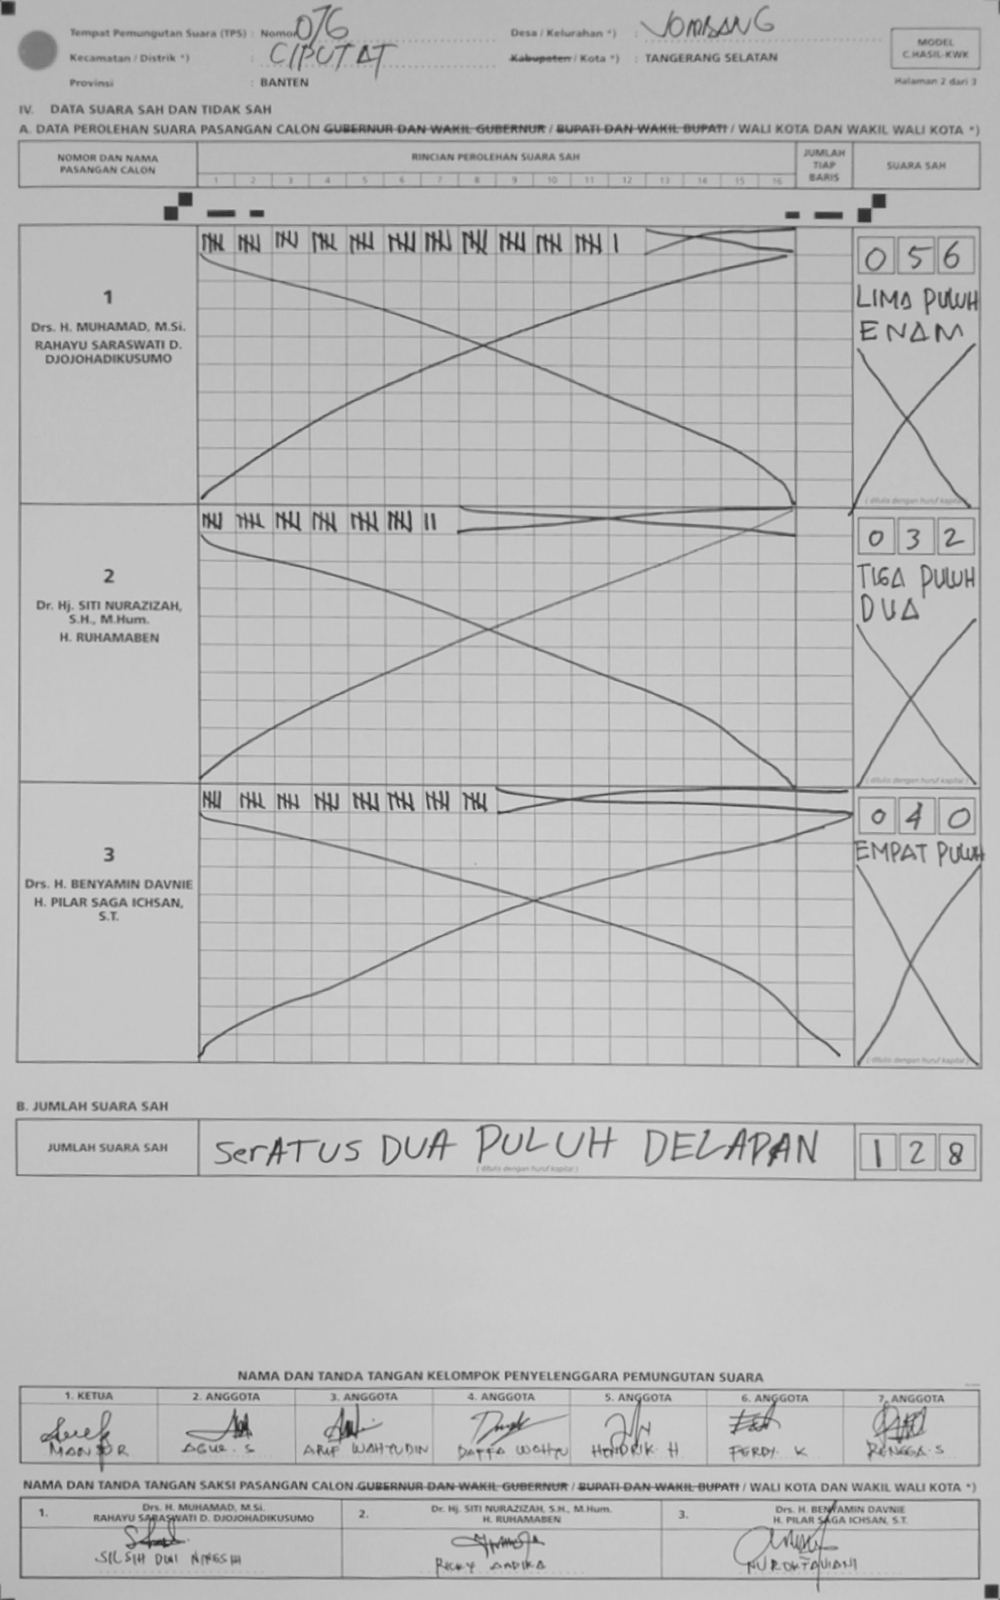 Tempat Pemungutan Suara (TPS) : Nomor 076
Desa / Kelurahan *) : JOMBANG
Kecamatan / Distrik *) : CIPUTAT
Kabupaten / Kota *) : TANGERANG SELATAN
Provinsi : BANTEN
MODEL
C.HASIL-KWK
Halaman 2 dari 3
IV. DATA SUARA SAH DAN TIDAK SAH
A. DATA PEROLEHAN SUARA PASANGAN CALON GUBERNUR DAN WAKIL GUBERNUR / BUPATI DAN WAKIL BUPATI / WALI KOTA DAN WAKIL WALI KOTA *)
NOMOR DAN NAMA
PASANGAN CALON
RINCIAN PEROLEHAN SUARA SAH
1 2 3 4 5 6 7 8 9 10 11 12 13 14 15 16
JUMLAH
TIAP
BARIS
SUARA SAH
1
Drs. H. MUHAMAD, M.Si.
RAHAYU SARASWATI D.
DJOJOHADIKUSUMO
056
LIMA PULUH
ENAM
( ditulis dengan huruf kapital )
2
Dr. Hj. SITI NURAZIZAH,
S.H., M.Hum.
H. RUHAMABEN
032
TIGA PULUH
DUA
( ditulis dengan huruf kapital )
3
Drs. H. BENYAMIN DAVNIE
H. PILAR SAGA ICHSAN,
S.T.
040
EMPAT PULUH
( ditulis dengan huruf kapital )
B. JUMLAH SUARA SAH
JUMLAH SUARA SAH
SerATUS DUA PULUH DELAPAN
( ditulis dengan huruf kapital )
128
NAMA DAN TANDA TANGAN KELOMPOK PENYELENGGARA PEMUNGUTAN SUARA
1. KETUA 2. ANGGOTA 3. ANGGOTA 4. ANGGOTA 5. ANGGOTA 6. ANGGOTA 7. ANGGOTA
AGUS. S ARIF WAHYUDIN DAFFA WAHYU HENDRIK H FERDY K RENGGA.S
NAMA DAN TANDA TANGAN SAKSI PASANGAN CALON GUBERNUR DAN WAKIL GUBERNUR / BUPATI DAN WAKIL BUPATI / WALI KOTA DAN WAKIL WALI KOTA *)
1. Drs. H. MUHAMAD, M.Si.
RAHAYU SARASWATI D. DJOJOHADIKUSUMO
SILSIH DWI NINGSIH
2. Dr. Hj. SITI NURAZIZAH, S.H., M.Hum.
H. RUHAMABEN
RICKY ANDIKA
3. Drs. H. BENYAMIN DAVNIE
H. PILAR SAGA ICHSAN, S.T.
NUR OKTAVIANI